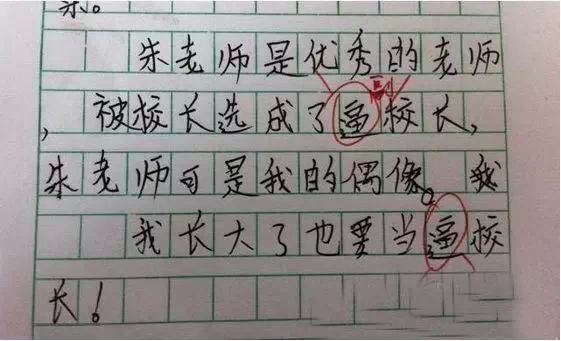 亲。
朱老师是优秀的老师
副
，被校长选成了逼校长，
朱老师可是我的偶像。我
我长大了也要当逼校
长！